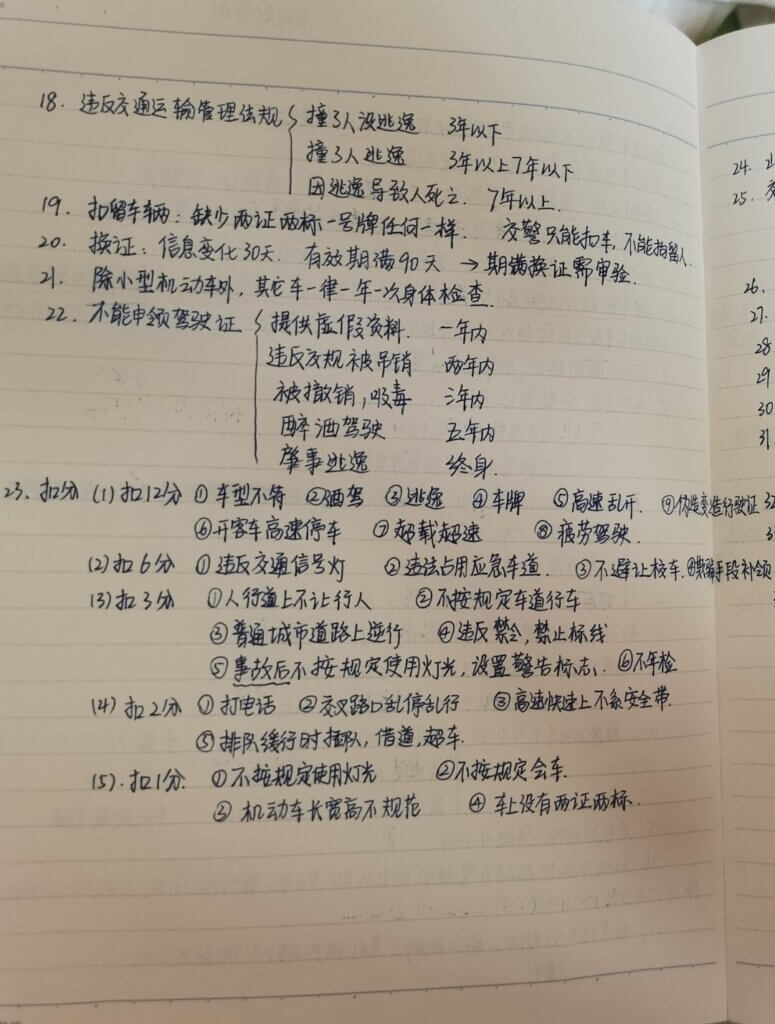 18. 违反交通运输管理法规 { 撞了人没逃逸 3年以下
撞了人逃逸 3年以上7年以下
因逃逸导致人死亡. 7年以上.
19. 扣留车辆: 缺少两证两标一号牌任何一样. 交警只能扣车, 不能拘留人.
20. 换证: 信息变化30天. 有效期满90天 → 期满换证需审验.
21. 除小型机动车外, 其它车一律一年一次身体检查.
22. 不能申领驾驶证 { 提供虚假资料. 一年内
违反交规被吊销 两年内
被撤销, 吸毒 三年内
醉酒驾驶 五年内
肇事逃逸 终身.
23. 扣分 (1) 扣12分 ① 车型不符 ②酒驾 ③逃逸 ④车牌 ⑤高速乱开. ⑨伪造变造行驶证
⑥开客车高速停车 ⑦超载超速 ⑧疲劳驾驶.
(2) 扣6分 ①违反交通信号灯 ②违法占用应急车道. ③不避让校车. ④欺骗手段补领
(3) 扣3分 ①人行道上不让行人 ②不按规定车道行车
③普通城市道路上逆行 ④违反禁令, 禁止标线
⑤事故后不按规定使用灯光, 设置警告标志. ⑥不年检
(4) 扣2分 ①打电话 ②交叉路口乱停乱行 ③高速快速上不系安全带.
⑤排队缓行时插队, 借道, 超车.
(5). 扣1分. ①不按规定使用灯光 ②不按规定会车.
③ 机动车长宽高不规范 ④ 车上没有两证两标.
24.
25.
26.
27.
28
29
30
31
32